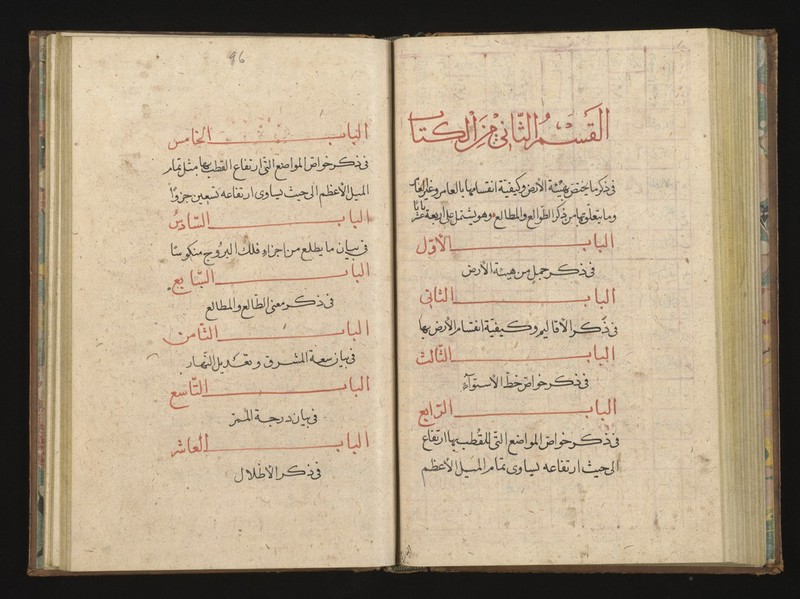 القسم الثاني من الكتاب
في ذكر ما يختص بهيئة الأرض وكيفية انقسامها بالعامر وغير العامر
وما يتعلق بها من ذكر الطوالع والمطالع وهو يشتمل على اربعة عشر بابا
الباب الأول
في ذكر جمل من هيئة الأرض
الباب الثاني
في ذكر الأقاليم وكيفية انقسام الأرض بها
الباب الثالث
في ذكر خواص خط الأستواء
الباب الرابع
في ذكر خواص المواضع التي للقطب بها ارتفاع
الى حيث ارتفاعه يساوى تمام الميل الأعظم
96
الباب الخامس
في ذكر خواص المواضع التي ارتفاع القطب بها مثل تمام
الميل الأعظم الى حيث يساوى ارتفاعه تسعين جزوا
الباب السادس
في بيان ما يطلع من اجزاء فلك البروج منكوسا
الباب السابع
في ذكر معنى الطالع والمطالع
الباب الثامن
في بيان سعة المشرق وتعديل النهار
الباب التاسع
في بيان درجة الممر
الباب العاشر
في ذكر الأظلال